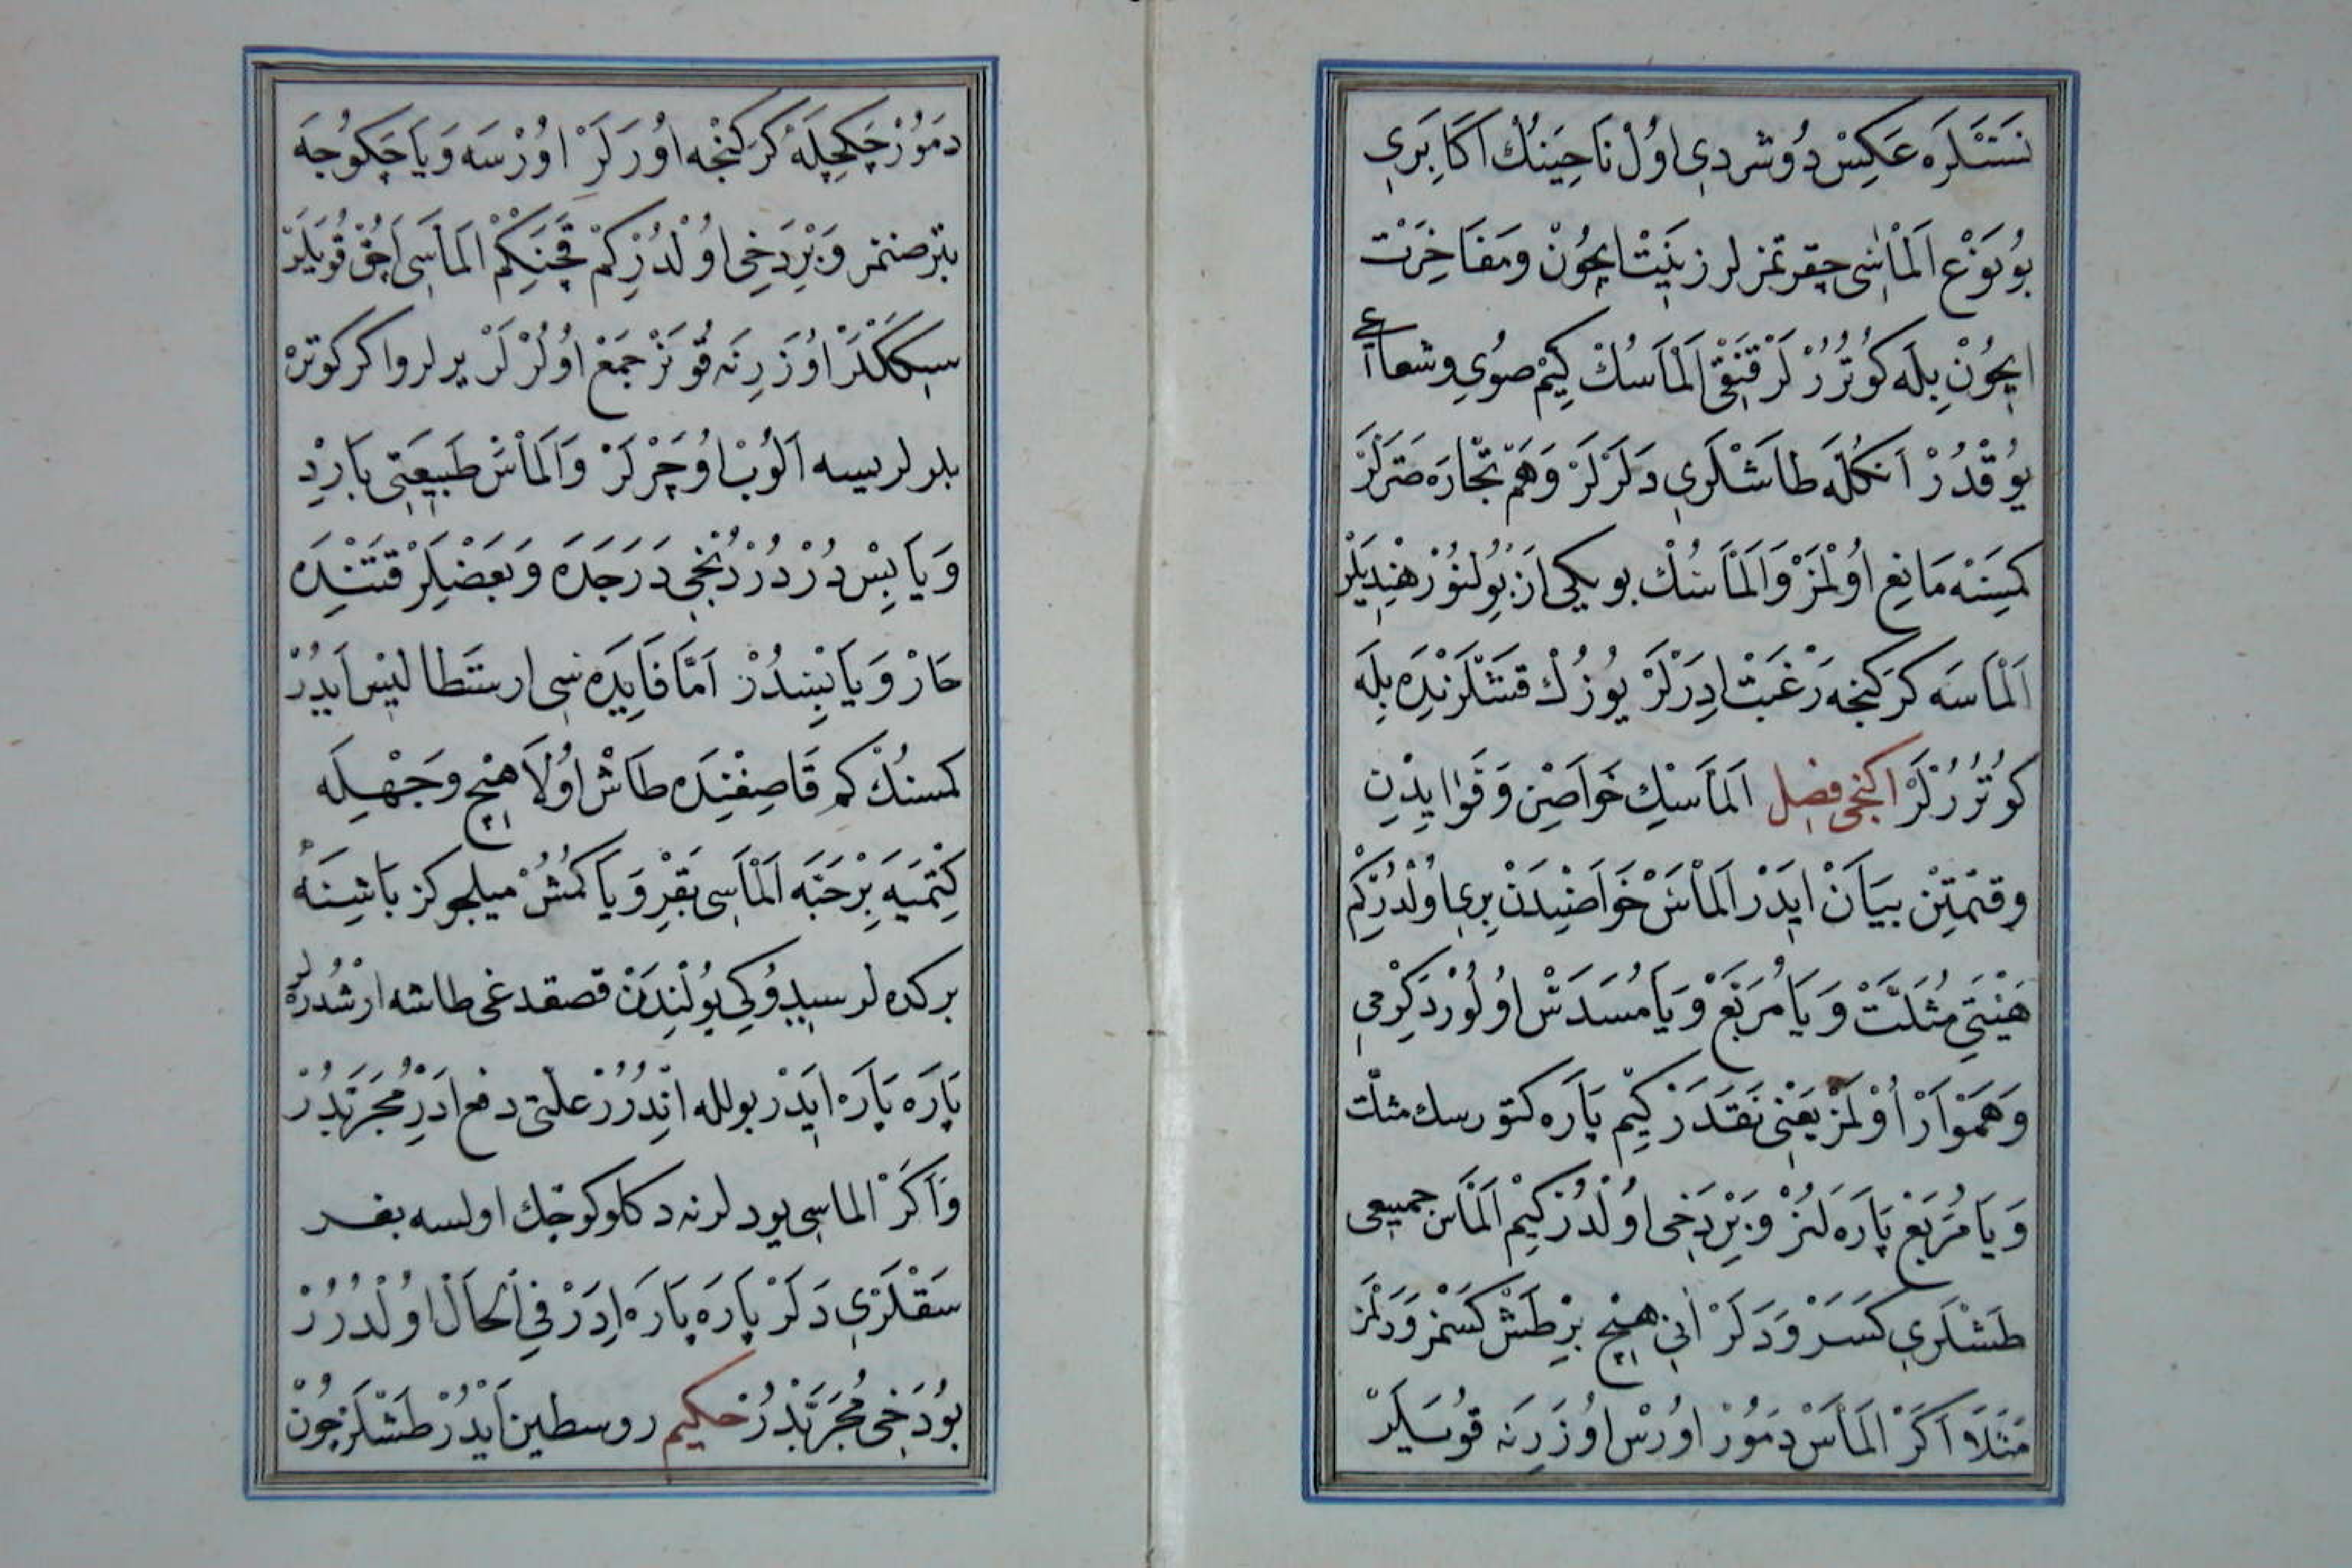 نَسْتَنَلَرَه عَكِسْ دُوشردِي اوُلْ نَاحِيَنُكْ اَكَابِرَي
بُونَوْعْ اَلْمَاسِی چقرتمزلر زِينَتْ اِيچُونْ وَمَفَاخِرَتْ
اِيچُونْ بِلَه كوُتُرُرْلَرْ قَنْقِی اَلْمَاسُكْ كِيمْ صُويِ وشعاعی
يُوقْدُرْ اَنكُلَه طَاشْلَرِي دَلَرْلَرْ وَهَمْ تُجَّارَه صَتَرْلَرْ
كَمِسَنَه مَانِعِ اوُلْمَزْ وَاَلْمَاسُكْ بويكی اَزْ بُولُنُورْ هِنْدِيلَرْ
اَلْمَاسَه كَرَكِنجه رَغْبَتْ اِدَرْلَرْ يُوزُكْ قَشْلَرَنْدَه بِلَه
كوُتُرُرْلَرْ اكنجی فصِل اَلمَاسِك خَوَاصِّنِ وَفَوَايِدِنِ
وقِمَتِنْ بيَانْ اَيدَرْ اَلْمَاسْ خَوَاصِّنِدَنْ بِرِي اوُلْدُرْكِمْ
هَيْئَتِي مُثَلَّثْ وَيَا مُرَبَّعْ وَيَا مُسَدَّسْ اوُلُورْ دَكِرْمِی
وَهَمْوَارْ اوُلْمَزْ يَعْنِی نَقَدَرْ كِيمْ پَارَه كتورسك مثلّث
وَيَا مُرَبَّعْ پَارَه لَنُرْ وَبِرْ دَخِی اوُلْدُرْ كِيمْ اَلْمَاسْ جميعِی
طَشْلَرِي كَسَرْ وَدَلَرْ اَنِی هِيچْ بِرْ طَشْ كَسْمَزْ وَدَلْمَزْ
مَثَلَا اَكَرْ اَلمَاسْ دَمُورْ اورُسْ اوُزَرِنَه قُوسَيلَرْ
دمُورْ چَكِچِلَه كَرَكِنْجَه اوُرَلَرْ اوُرْسَه وَيَا چَكُوجَه
بترصنمز وَبِرْدَخِی اوُلْدُرْكِمْ قَچَنكِمْ اَلمَاسِی اَچُقْ قُويَلَرْ
سِكَكْلَرْ اوُزَرِنَه قُونَرْ جَمَعْ اوُلُرْلَرْ يرلر واكر كوترَه
بلورلرسه اَلُوبْ اوُچَرْلَرْ وَاَلْمَاسْ طَبِيعَتِی بَارِدْ
وَيَابِسْ دُرْ دُرْدُنْجِی دَرَجَدَه وَبَعْضِلَرْ قَتِنْدَه
حَارْ وَيَابِسْدُرْ اَمَّا فَايِدَه سِی ارِسْتَطَالِيسْ اَيدُرْ
كمسنُكْ كِمْ قَاصِغِنْدَه طَاشْ اوُلَا هِيچْ وَجْهِلَه
كِتْمَيَه بِرْ حَبَّه اَلْمَاسِی بَقِرْ وَيَا كمُشْ ميلجوكز بَاشِنَه
بركده لر سيدوُكِي يُولْنِدَنْ قصقدغی طاشه ارْشُدرَه لر
پَارَه پَارَه اَيدَرْ بوللَه اِنْدُرُرْ علّتی دفع ادَرْ مُجَرَّبْدُرْ
وَاَكَرْ الماسِی يودلرنه دكلو كوچك اولسه بغر
سَقْلَرِي دَلَرْ پَارَه پَارَه اِدَرْ فِي الْحَالْ اوُلْدُرُرْ
بُودَخِی مُجَرَّبْدُرْ حكيم روسطين اَيدُرْ طَشْلَرْچُونْ